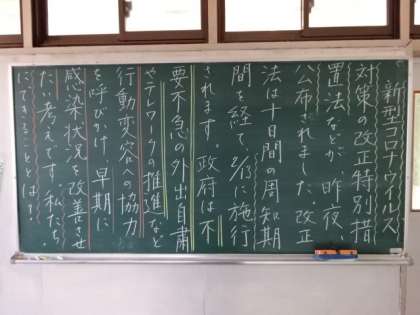 新型コロナウイルス
対策の改正特別措
置法などが、昨夜
公布されました。改正
法は十日間の周知期
間を経て、2/13に施行
されます。政府は不
要不急の外出自粛
やテレワークの推進など
行動変容への協力
を呼びかけ、早期に
感染状況を改善させ
たい考えです。私たち
にできることとは?